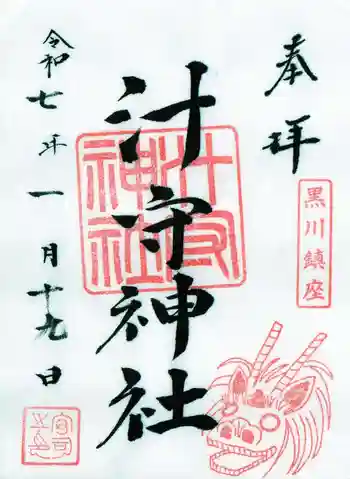 奉拝
黒川鎮座
汁守神社
令和七年一月十九日
汁守神社